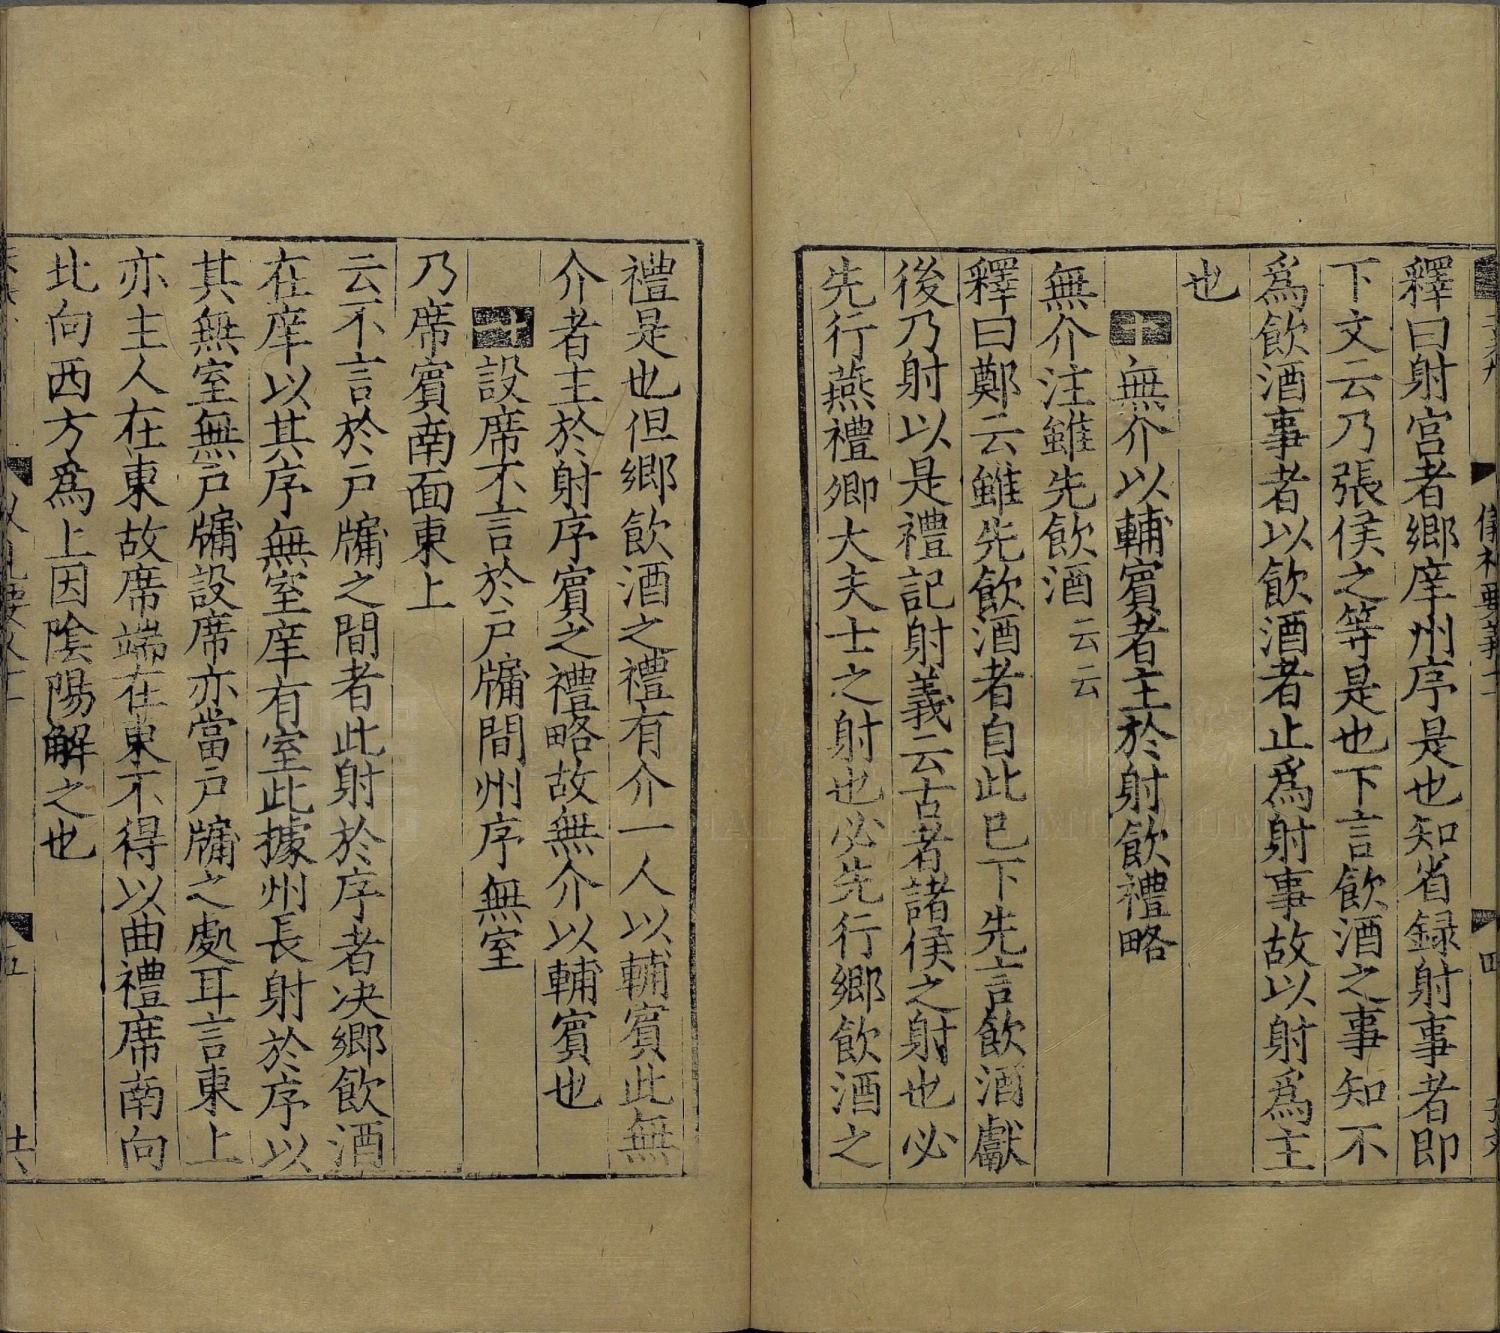 釋曰射宫者鄉庠州序是也知省録射事者即
下文云乃張侯之等是也下言飲酒之事知不
爲飲酒事者以飲酒者止爲射事故以射爲主
也
十 無介以輔賓者主於射飲禮略
無介注雖先飲酒云云
釋曰鄭云雖先飲酒者自此已下先言飲酒獻
後乃射以是禮記射義云古者諸侯之射也必
先行燕禮卿大夫士之射也必先行鄉飲酒之
禮是也但鄉飲酒之禮有介一人以輔賓此無
介者主於射序賓之禮略故無介以輔賓也
十一 設席不言於戶牖間州序無室
乃席賓南面東上
云不言於戶牖之間者此射於序者决鄉飲酒
在庠以其序無室庠有室此據州長射於序以
其無室無戶牖設席亦當戶牖之處耳言東上
亦主人在東故席端在東不得以曲禮席南向
北向西方爲上因陰陽解之也